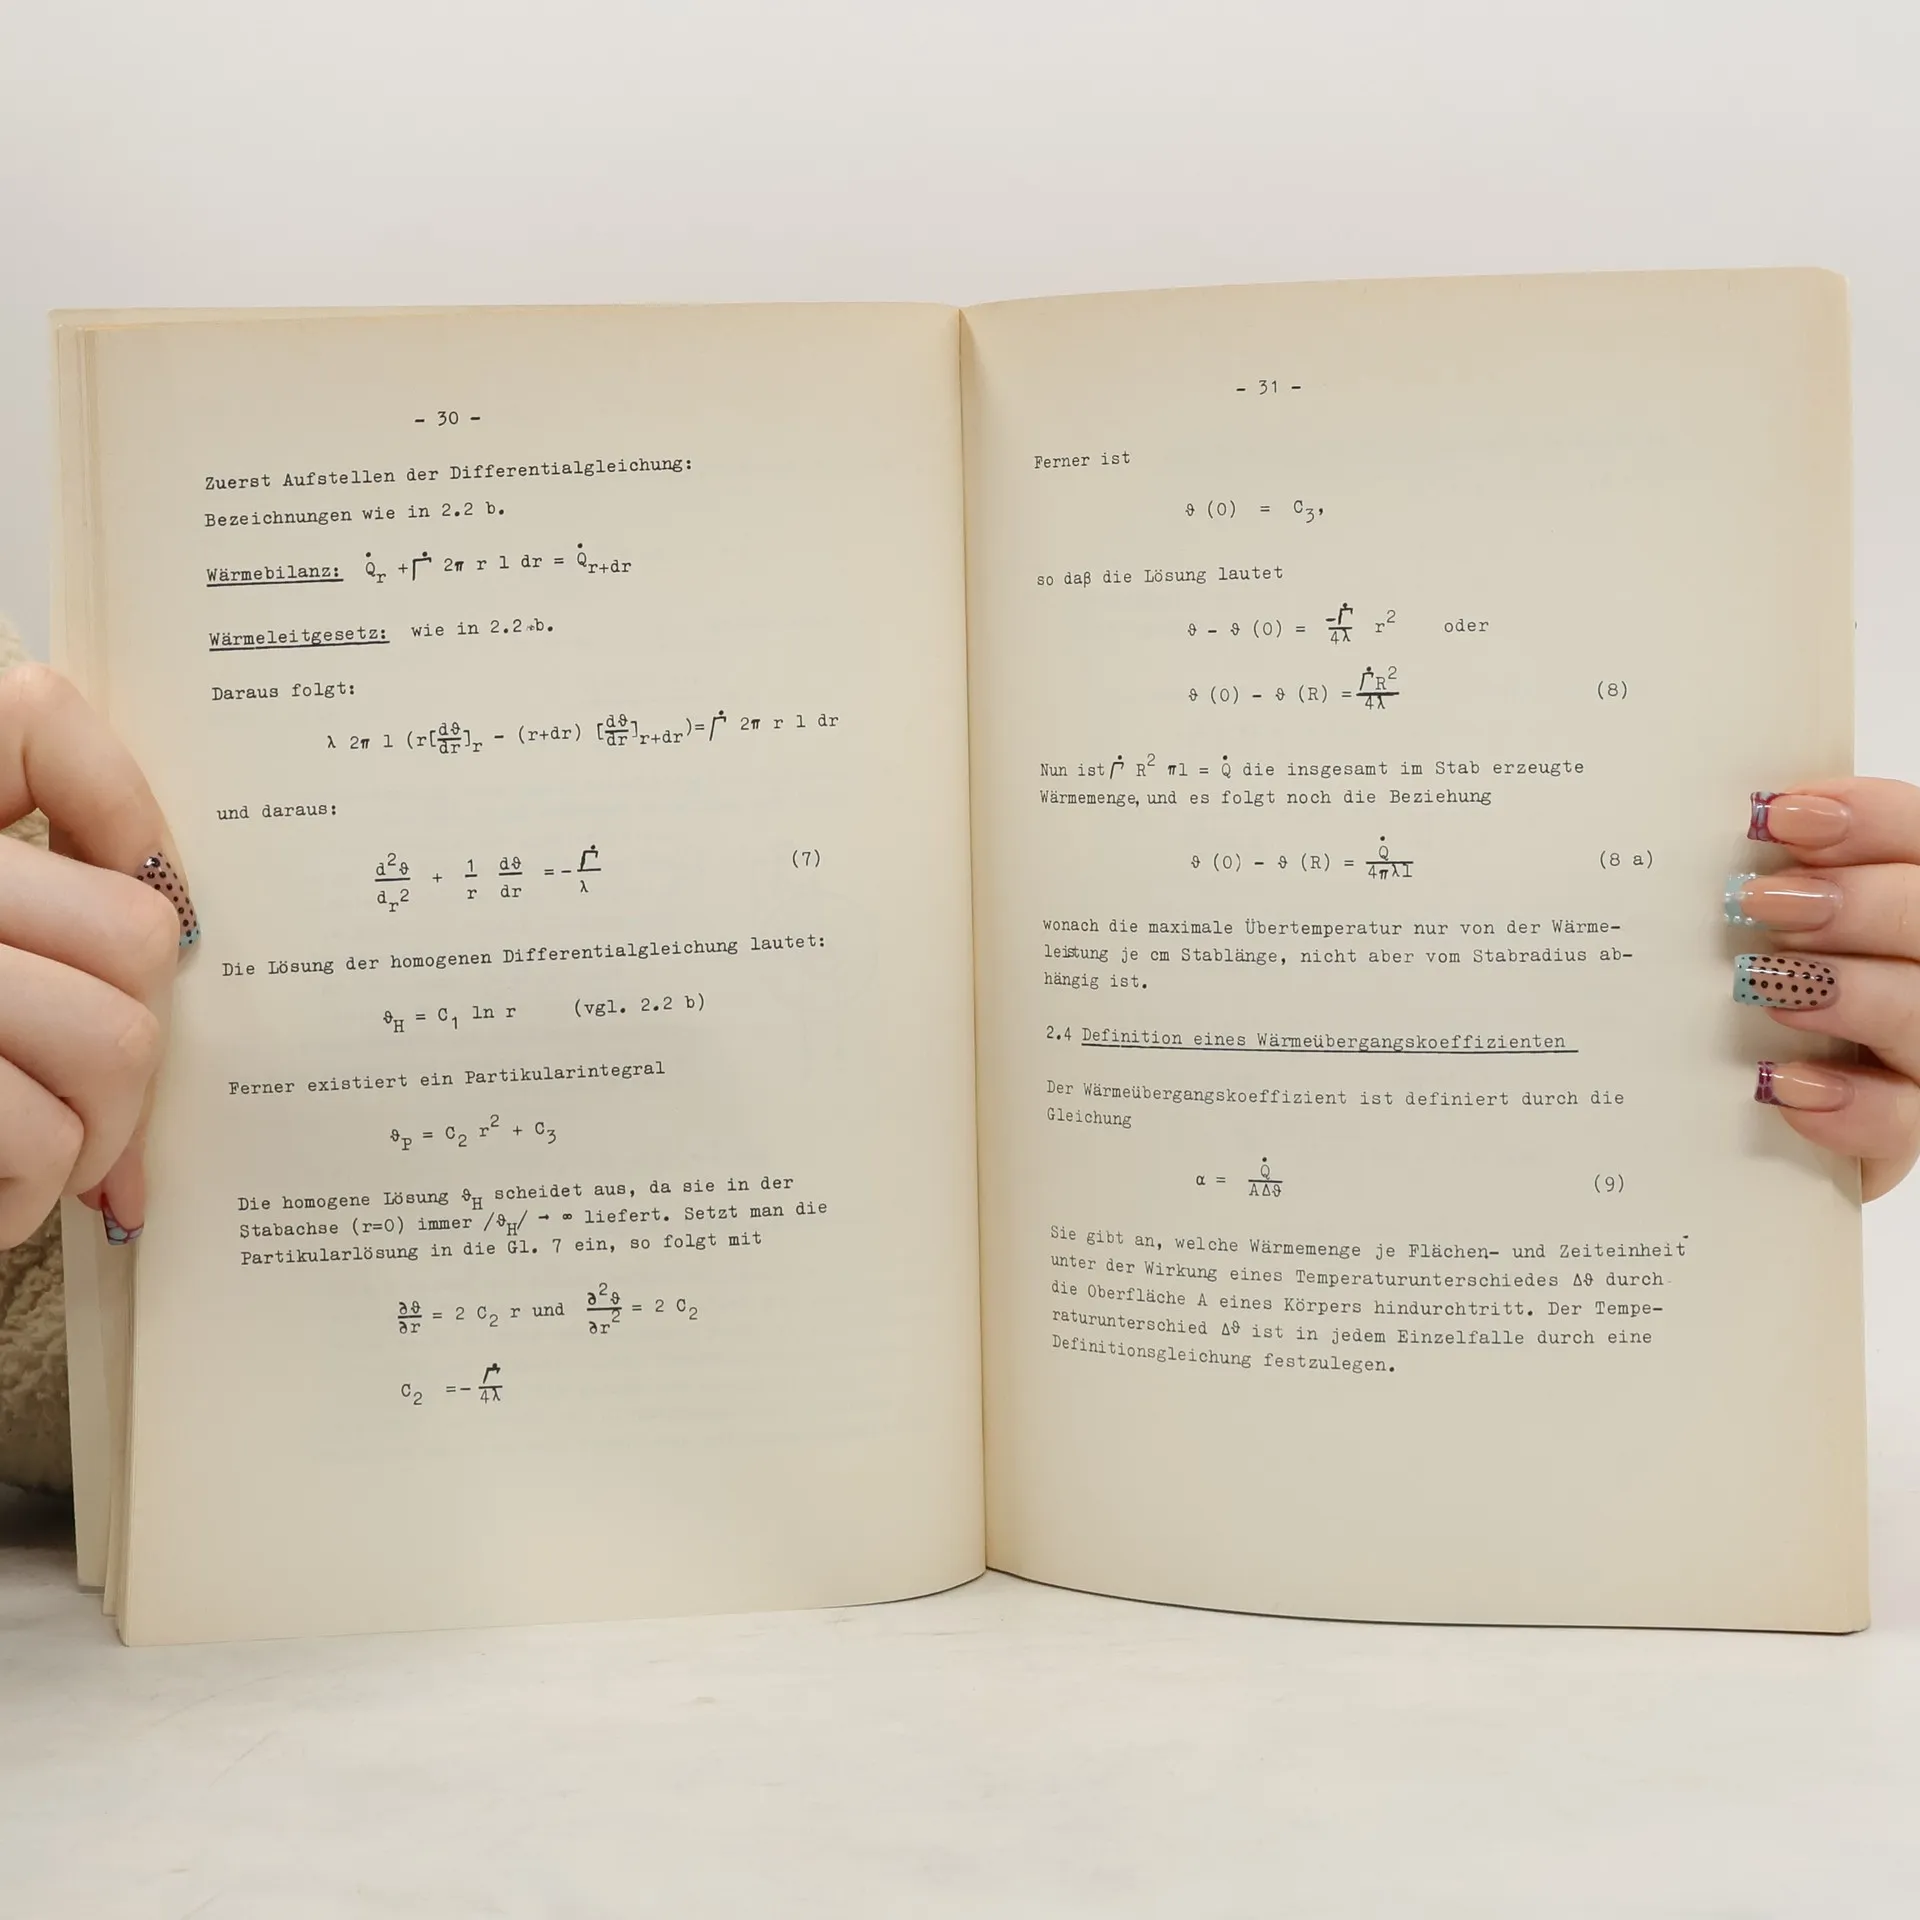 - 30 -
Zuerst Aufstellen der Differentialgleichung:
Bezeichnungen wie in 2.2 b.
Wärmebilanz: Q̇_r + Γ̇ 2π r l dr = Q̇_r+dr
Wärmeleitgesetz: wie in 2.2 b.
Daraus folgt:
λ 2π l (r[dϑ/dr]_r - (r+dr) [dϑ/dr]_r+dr)=Γ̇ 2π r l dr
und daraus:
d²ϑ/d_r² + 1/r dϑ/dr = - Γ̇/λ (7)
Die Lösung der homogenen Differentialgleichung lautet:
ϑ_H = C₁ ln r (vgl. 2.2 b)
Ferner existiert ein Partikularintegral
ϑ_P = C₂ r² + C₃
Die homogene Lösung ϑ_H scheidet aus, da sie in der
Stabachse (r=0) immer /ϑ_H/ → ∞ liefert. Setzt man die
Partikularlösung in die Gl. 7 ein, so folgt mit
∂ϑ/∂r = 2 C₂ r und ∂²ϑ/∂r² = 2 C₂
C₂ = - Γ̇/4λ
- 31 -
Ferner ist
ϑ (0) = C₃,
so daß die Lösung lautet
ϑ - ϑ (0) = -Γ̇/4λ r² oder
ϑ (0) - ϑ (R) = Γ̇R²/4λ (8)
Nun ist Γ̇ R² πl = Q̇ die insgesamt im Stab erzeugte
Wärmemenge, und es folgt noch die Beziehung
ϑ (0) - ϑ (R) = Q̇/4πλl (8 a)
wonach die maximale Übertemperatur nur von der Wärme-
leistung je cm Stablänge, nicht aber vom Stabradius ab-
hängig ist.
2.4 Definition eines Wärmeübergangskoeffizienten
Der Wärmeübergangskoeffizient ist definiert durch die
Gleichung
α = Q̇/AΔϑ (9)
Sie gibt an, welche Wärmemenge je Flächen- und Zeiteinheit
unter der Wirkung eines Temperaturunterschiedes Δϑ durch
die Oberfläche A eines Körpers hindurchtritt. Der Tempe-
raturunterschied Δϑ ist in jedem Einzelfalle durch eine
Definitionsgleichung festzulegen.